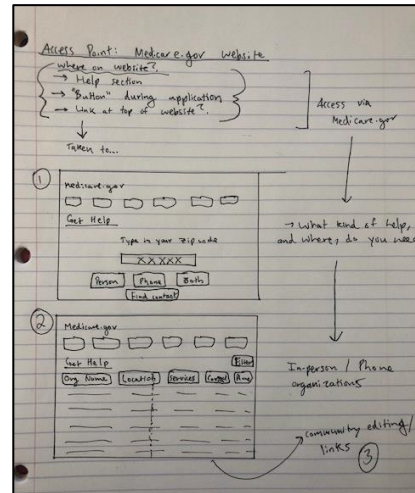 Access Point: Medicare.gov website
where on website?
→ Help section
→ "Button" during application
→ Link at top of website?
Access via
Medicare.gov
Taken to...
1
medicare.gov
Get Help
Type in your zip code
XXXXX
Person Phone Both
Find contact
→ What kind of help,
and where, do you need
2
Medicare.gov
Get Help
Filter
Org Name Location Services Contact
In-person / Phone
organizations
community editing/
links 3